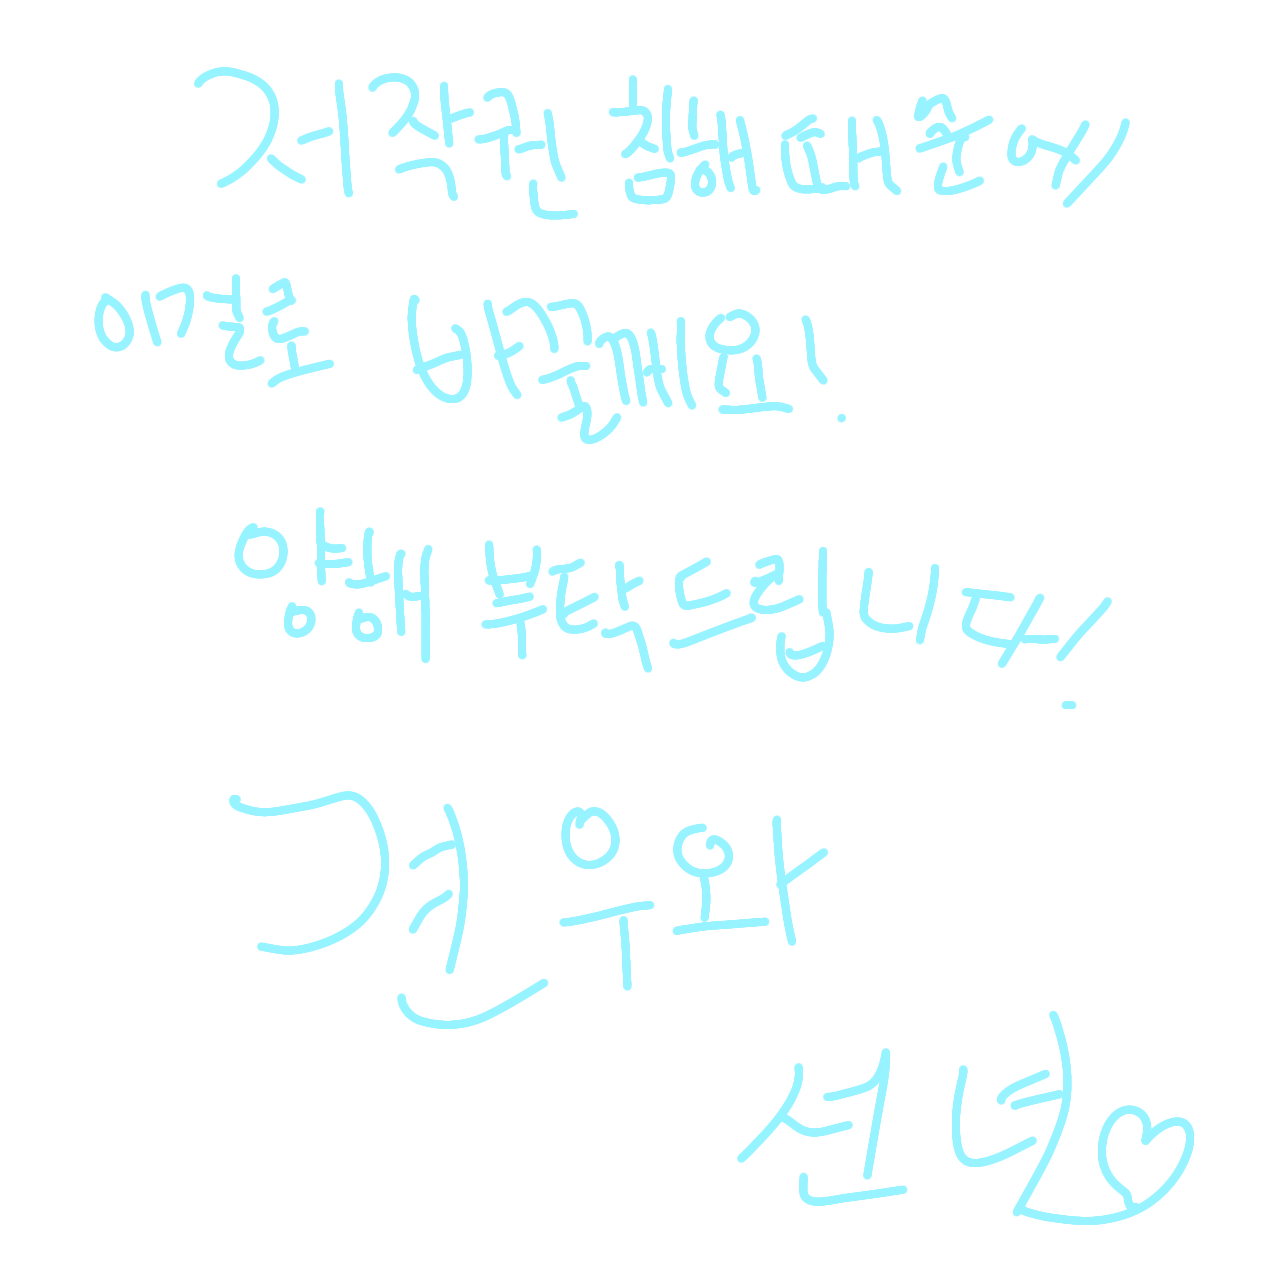 저작권 침해 때문에
이걸로 바꿀께요!
양해 부탁드립니다!
견우와
선녀